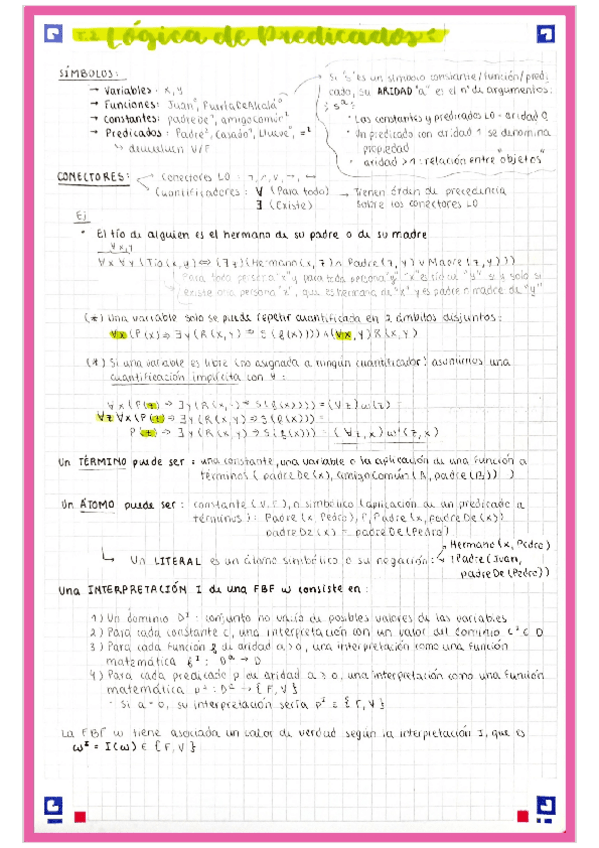 T.2 Lógica de Predicados:
SÍMBOLOS:
→ Variables: x, y
→ Funciones: Juan⁰, PuertaDeAlcalá⁰
→ Constantes: padreDe¹, amigoComún²
→ Predicados: Padre², Casado¹, Llueve⁰, =²
↳ devuelven V/F
Si "s" es un símbolo constante/función/predi-
cado, su ARIDAD "a" es el nº de argumentos:
• Las constantes y predicados L0 → aridad 0
• Un predicado con aridad 1 se denomina
propiedad
• aridad >1: relación entre "objetos"
CONECTORES:
Conectores L0: ¬, ∧, ∨, →, ↔
Cuantificadores: ∀ (Para todo)
∃ (Existe)
→ Tienen órden de precedencia
sobre los conectores L0
Ej
• El tío de alguien es el hermano de su padre o de su madre
∀x∀y(Tío(x,y) ⇔ (∃z)(Hermano(x,z) ∧ Padre(z,y) ∨ Madre(z,y)))
Para toda persona "x" y para toda persona "y" "x" es tío de "y" si y solo si
existe una persona "z", que es hermana de "x" y es padre o madre de "y"
(*) Una variable solo se puede repetir cuantificada en 2 ámbitos disjuntos:
∀x(P(x) ⇒ ∃y(R(x,y) ⇒ S(f(x)))) ∧ (∀x,y)R(x,y)
(*) Si una variable es libre (no asignada a ningún cuantificador) asumimos una
cuantificación implícita con ∀:
∀x(P(z) ⇒ ∃y(R(x,y) ⇒ S(f(x)))) = (∀z)ω(z) =
∀z∀x(P(z) ⇒ ∃y(R(x,y) ⇒ S(f(x))) =
P(z) ⇒ ∃y(R(x,y) ⇒ S(f(x))) = (∀z,x)ω'(z,x)
Un TÉRMINO puede ser: una constante, una variable o la aplicación de una función a
términos (padreDe(x), amigoComún(A, padre(B)))
Un ÁTOMO puede ser: constante (V,F), o simbólico (aplicación de un predicado a
términos): Padre(x, Pedro), Padre(x, padreDe(x))
padreDe(x) = padreDe(Pedro)
↳ Un LITERAL es un átomo simbólico o su negación:
Hermano(x, Pedro)
¬Padre(Juan,
padreDe(Pedro))
Una INTERPRETACIÓN I de una FBF ω consiste en:
1) Un dominio Dᴵ: conjunto no vacío de posibles valores de las variables
2) Para cada constante c, una interpretación con un valor del dominio cᴵ ∈ D
3) Para cada función f de aridad a>0, una interpretación como una función
matemática fᴵ: Dᵃ → D
4) Para cada predicado p de aridad a>0, una interpretación como una función
matemática pᴵ: Dᵃ → {F,V}
• Si a=0, su interpretación sería pᴵ ∈ {F,V}
La FBF ω tiene asociada un valor de verdad según la interpretación I, que es
ωᴵ = I(ω) ∈ {F,V}